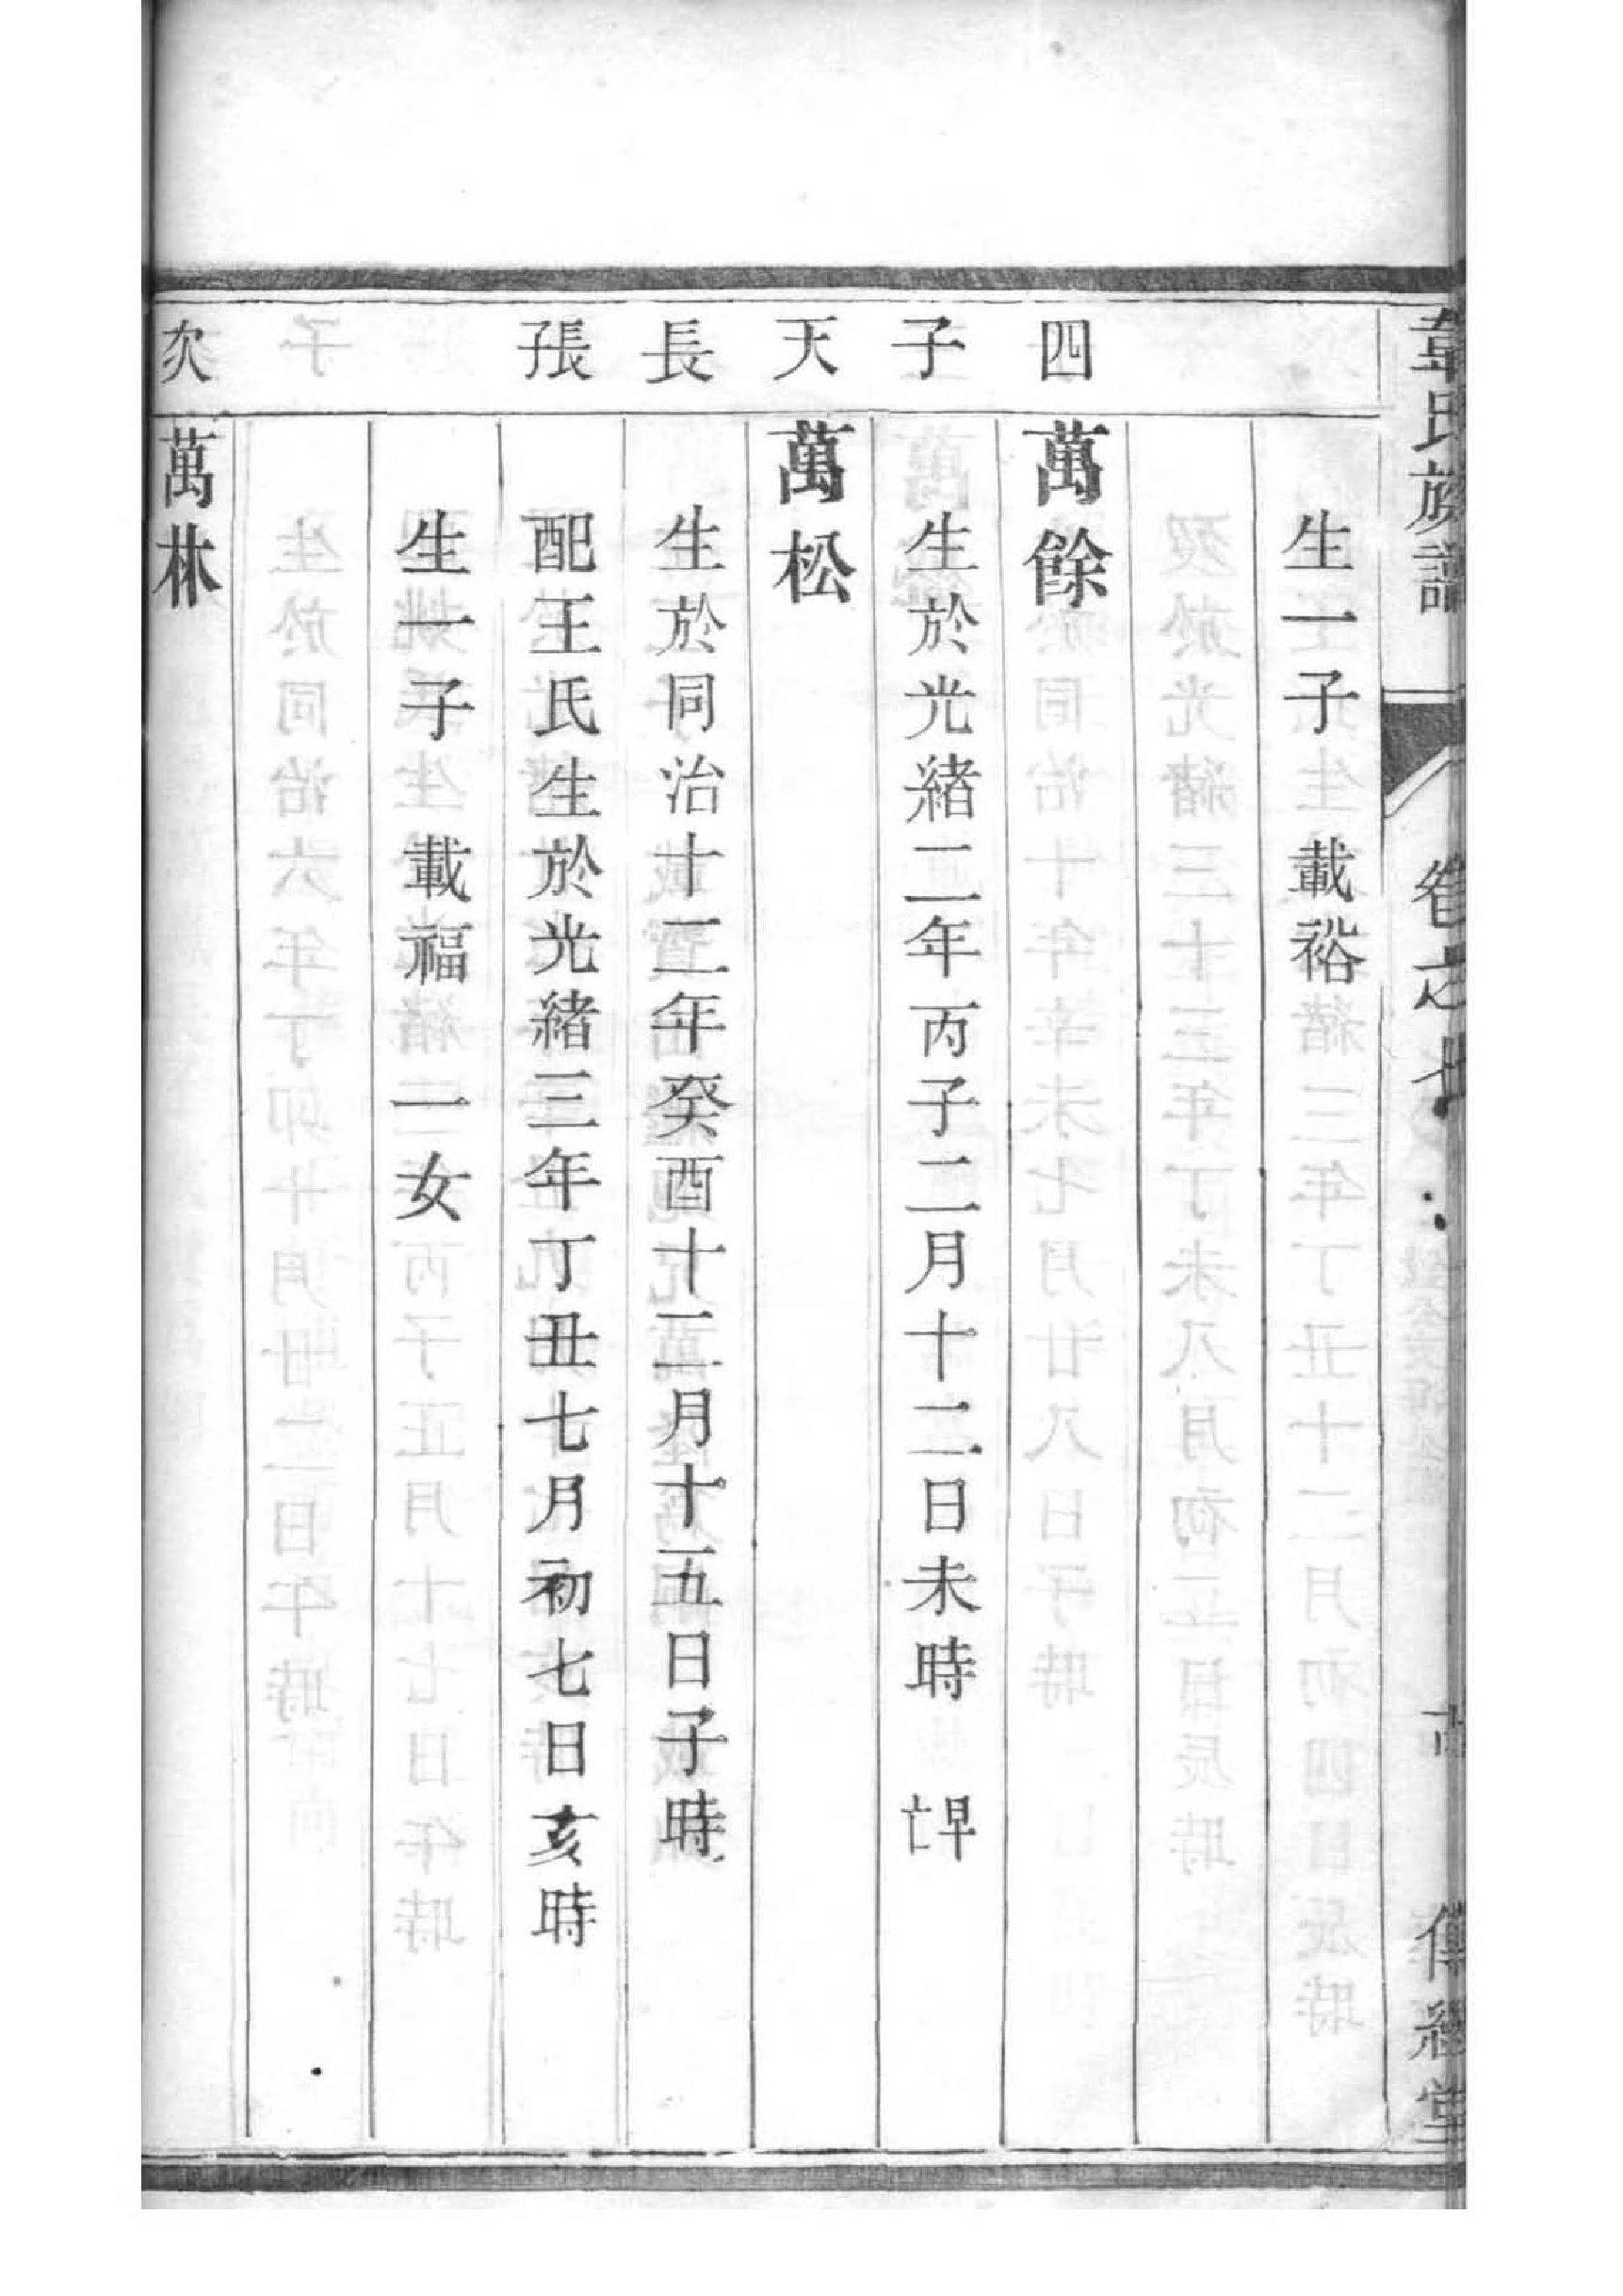 韋氏族譜 卷之 傳經堂
生一子 載裕
四
萬餘
子
生於光緒二年丙子二月十二日未時 早亡
天
萬松
長
生於同治十二年癸酉十二月十五日子時
長子
配王氏生於光緒三年丁丑七月初七日亥時
生一子 載福 一女
次
萬林